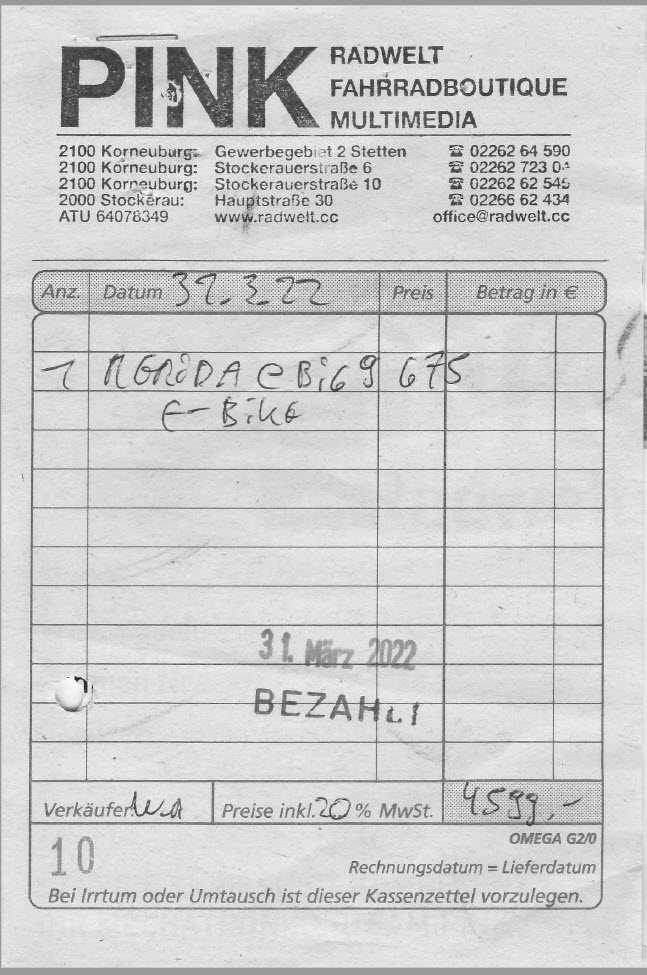 PINK
RADWELT
FAHRRADBOUTIQUE
MULTIMEDIA
2100 Korneuburg: Gewerbegebiet 2 Stetten ☎ 02262 64 590
2100 Korneuburg: Stockerauerstraße 6 ☎ 02262 723
2100 Korneuburg: Stockerauerstraße 10 ☎ 02262 62 545
2000 Stockerau: Hauptstraße 30 ☎ 02266 62 434
ATU 64078349 www.radwelt.cc office@radwelt.cc
Anz. Datum 31.3.22 Preis Betrag in €
1 MERIDA eBiG 9 675
E-Bike
31. März 2022
BEZAHLT
Verkäufer: Preise inkl. 20 % MwSt. 4599,-
OMEGA G2/0
10
Rechnungsdatum = Lieferdatum
Bei Irrtum oder Umtausch ist dieser Kassenzettel vorzulegen.